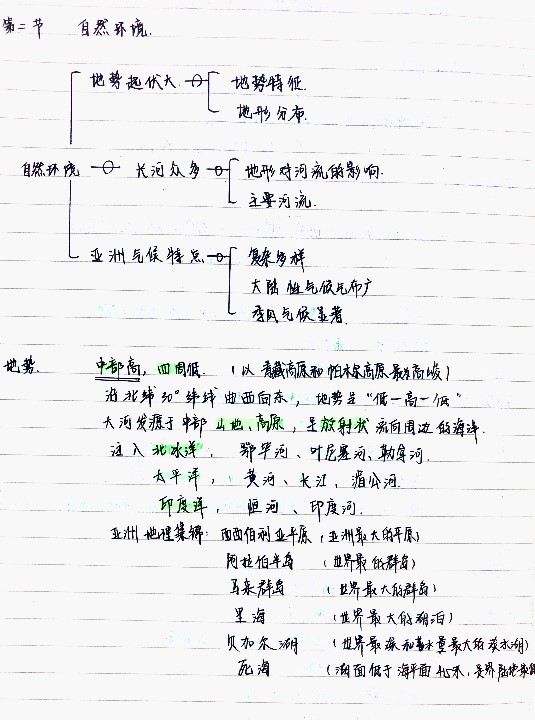 第二节 自然环境.
地势起伏大 地势特征.
地形分布.
自然环境 长河众多 地形对河流的影响.
主要河流.
亚洲气候特点 复杂多样
大陆性气候分布广
季风气候显著.
地势. 中部高, 四周低. (以青藏高原和帕米尔高原最高峻)
沿北纬30°纬线由西向东, 地势呈“低—高—低”
大河发源于中部山地、高原, 呈放射状流向周边的海洋.
注入北冰洋, 鄂毕河、叶尼塞河、勒拿河.
太平洋, 黄河、长江、湄公河.
印度洋, 恒河、印度河.
亚洲地理集锦: 西西伯利亚平原 (亚洲最大的平原)
阿拉伯半岛 (世界最 的群岛)
马来群岛 (世界最大的群岛)
里海 (世界最大的湖泊)
贝加尔湖 (世界最深和蓄水量最大的淡水湖)
死海 (湖面低于海平面 米,